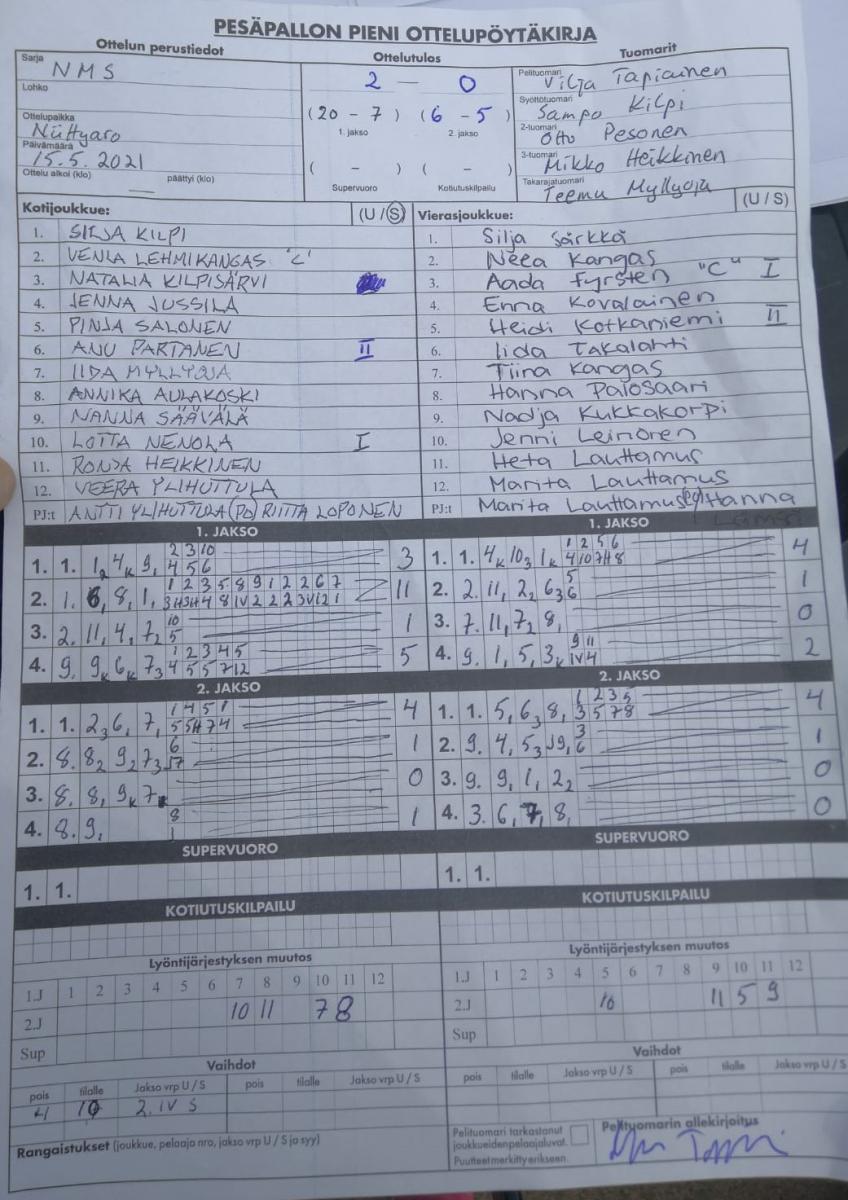 PESÄPALLON PIENI OTTELUPÖYTÄKIRJA
Ottelun perustiedot
Ottelutulos
Tuomarit
Sarja NMS
Lohko
Ottelupaikka
Päivämäärä 15.5.2021
Ottelu alkoi (klo) päättyi (klo)
2 – 0
(20 - 7) (6 - 5)
1. jakso 2. jakso
( - ) ( - )
Supervuoro Kotiutuskilpailu
Pelituomari Vilja Tapiainen
Syöttötuomari Sampo Kilpi
2-tuomari Otto Pesonen
3-tuomari Mikko Heikkinen
Takarajatuomari Teemu Myllyoja
Kotijoukkue: (U / S)
1. SILJA KILPI
2. VENLA LEHMIKANGAS "C"
3. NATALIA KILPISÄRVI
4. JENNA JUSSILA
5. PINJA SALONEN
6. ANU PARTANEN II
7. IIDA MYLLYOJA
8. ANNIKA AULAKOSKI
9. NANNA SÄÄVÄLÄ
10. LOTTA NENOLA I
11. RONJA HEIKKINEN
12. VEERA YLIHUTTULA
PJ:t ANTTI YLIHUTTULA (PJ) RIITTA LOPONEN
Vierasjoukkue: (U / S)
1. Silja Särkkä
2. Neea Kangas
3. Aada Fyrsten "C" I
4. Enna Kovalainen
5. Heidi Kotkaniemi II
6. Iida Takalahti
7. Tiina Kangas
8. Hanna Palosaari
9. Nadja Kukkakorpi
10. Jenni Leinonen
11. Heta Lauttamus
12. Marita Lauttamus
PJ:t Marita Lauttamus Hanna
1. JAKSO
1. 1. 1 2 4 K 9,
2 3 10
4 5 6
3
2. 1. 6, 8, 1,
1 2 3 5 8 9 1 2 2 6 7
11
3. 2. 11, 4, 7 2
10
5
1
4. 9. 9 K 6 K 7 3
1 2 3 4 5
4 5 5 7 12
5
1. JAKSO
1. 1. 4 K 10 3 1 K
1 2 5 6
4 10 7H 8
4
2. 2. 11, 2 2 6 3
5
6
1
3. 7. 11, 7 2 8,
0
4. 9. 1, 5, 3 K
9 11
IV 4
2
2. JAKSO
1. 1. 2 3 6, 7,
1 4 5 1
5 5H 7 4
4
2. 8. 8 2 9 2 7 3
6
1
3. 8. 8, 9 K 7
0
4. 8. 9,
8
1
1
2. JAKSO
1. 1. 5, 6 3 8,
1 2 3 5
3 5 7 8
4
2. 9. 4, 5 3 9,
3
6
1
3. 9. 9, 1, 2 2
0
4. 3. 6, 7, 8,
0
SUPERVUORO
1. 1.
SUPERVUORO
1. 1.
KOTIUTUSKILPAILU
KOTIUTUSKILPAILU
Lyöntijärjestyksen muutos
1.J 1 2 3 4 5 6 7 8 9 10 11 12
2.J 10 11 7 8
Sup
Lyöntijärjestyksen muutos
1.J 1 2 3 4 5 6 7 8 9 10 11 12
2.J 10 11 5 9
Sup
Vaihdot
pois tilalle Jakso vrp U / S pois tilalle Jakso vrp U / S
4 10 2. IV S
Vaihdot
pois tilalle Jakso vrp U / S pois tilalle Jakso vrp U / S
Rangaistukset (joukkue, pelaaja nro, jakso vrp U / S ja syy)
Pelituomari tarkastanut
joukkueidenpelaajaluvat.
Puutteet merkitty erikseen.
Pelituomarin allekirjoitus